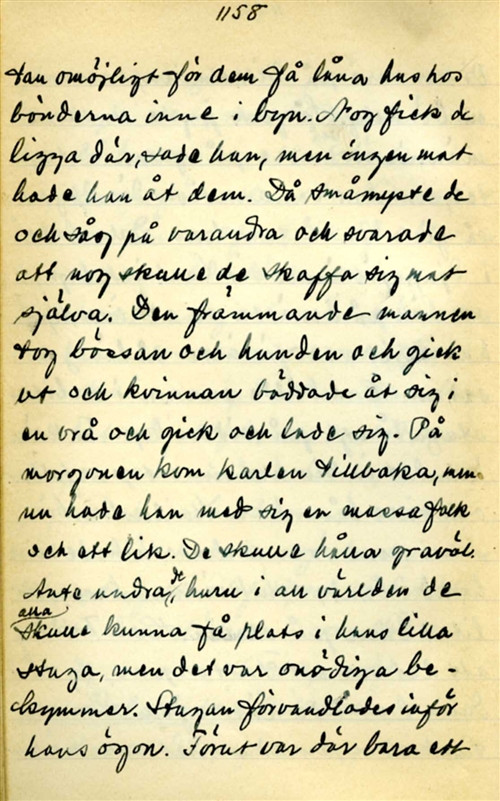 1158
tan omöjligt för dem få låna hus hos
bönderna inne i byn. Nog fick de
ligga där, sade han, men ingen mat
hade han åt dem. Då småmyste de
och såg på varandra och svarade
att nog skulle de skaffa sig mat
själva. Den främmande mannen
tog bössan och hunden och gick
ut och kvinnan bäddade åt sig i
en vrå och gick och lade sig. På
morgonen kom karlen tillbaka, men
nu hade han med sig en massa folk
och ett lik. De skulle hålla gravöl.
Ante undrade, huru i all världen de
alla
skulle kunna få plats i hans lilla
stuga, men det var onödiga be-
kymmer. Stugan förvandlades inför
hans ögon. Förut var där bara ett